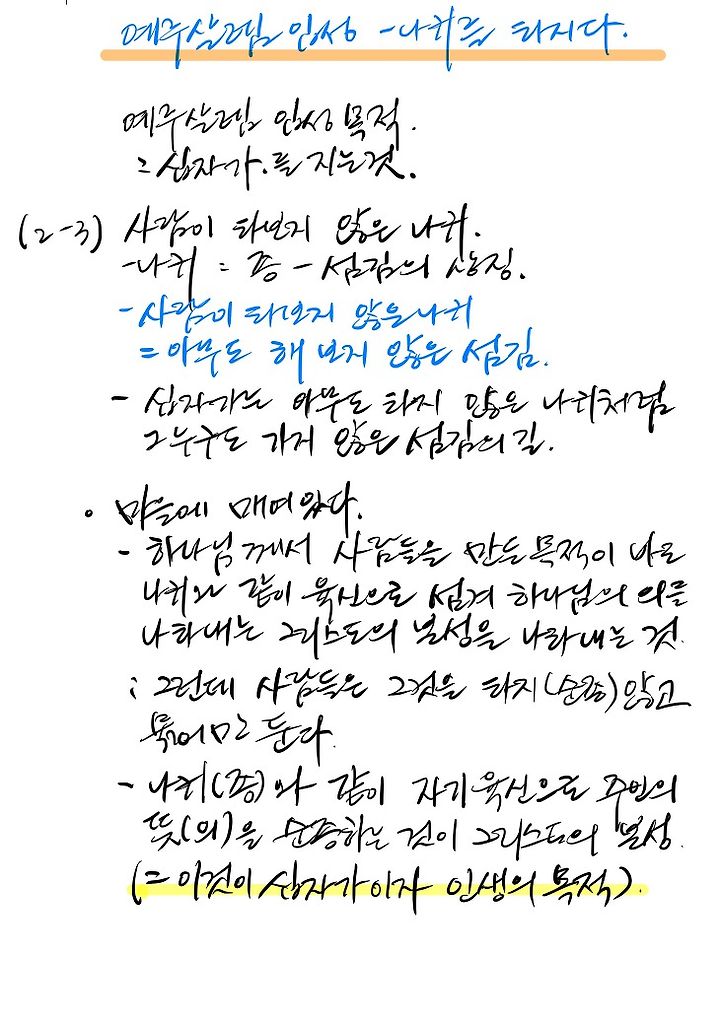 예루살렘 입성 - 나귀를 타시다.
예루살렘 입성 목적.
= 십자가.를 지는 것.
(2-3) 사람이 타보지 않은 나귀.
- 나귀 = 종 - 섬김의 상징.
- 사람이 타보지 않은 나귀
= 아무도 해 보지 않은 섬김.
- 십자가는 아무도 타지 않은 나귀처럼
그 누구도 가지 않은 섬김의 길.
• 마을에 매여있다.
- 하나님께서 사람들을 만든 목적이 바로
나귀와 같이 육신으로 섬겨 하나님의 의를
나타내는 그리스도의 본성을 나타내는 것.
; 그런데 사람들은 그것을 타지(순종) 않고
묶어만 둔다.
- 나귀(종)와 같이 자기 육신으로 주인의
뜻(의)을 순종하는 것이 그리스도의 본성.
(= 이것이 십자가이자 인생의 목적).